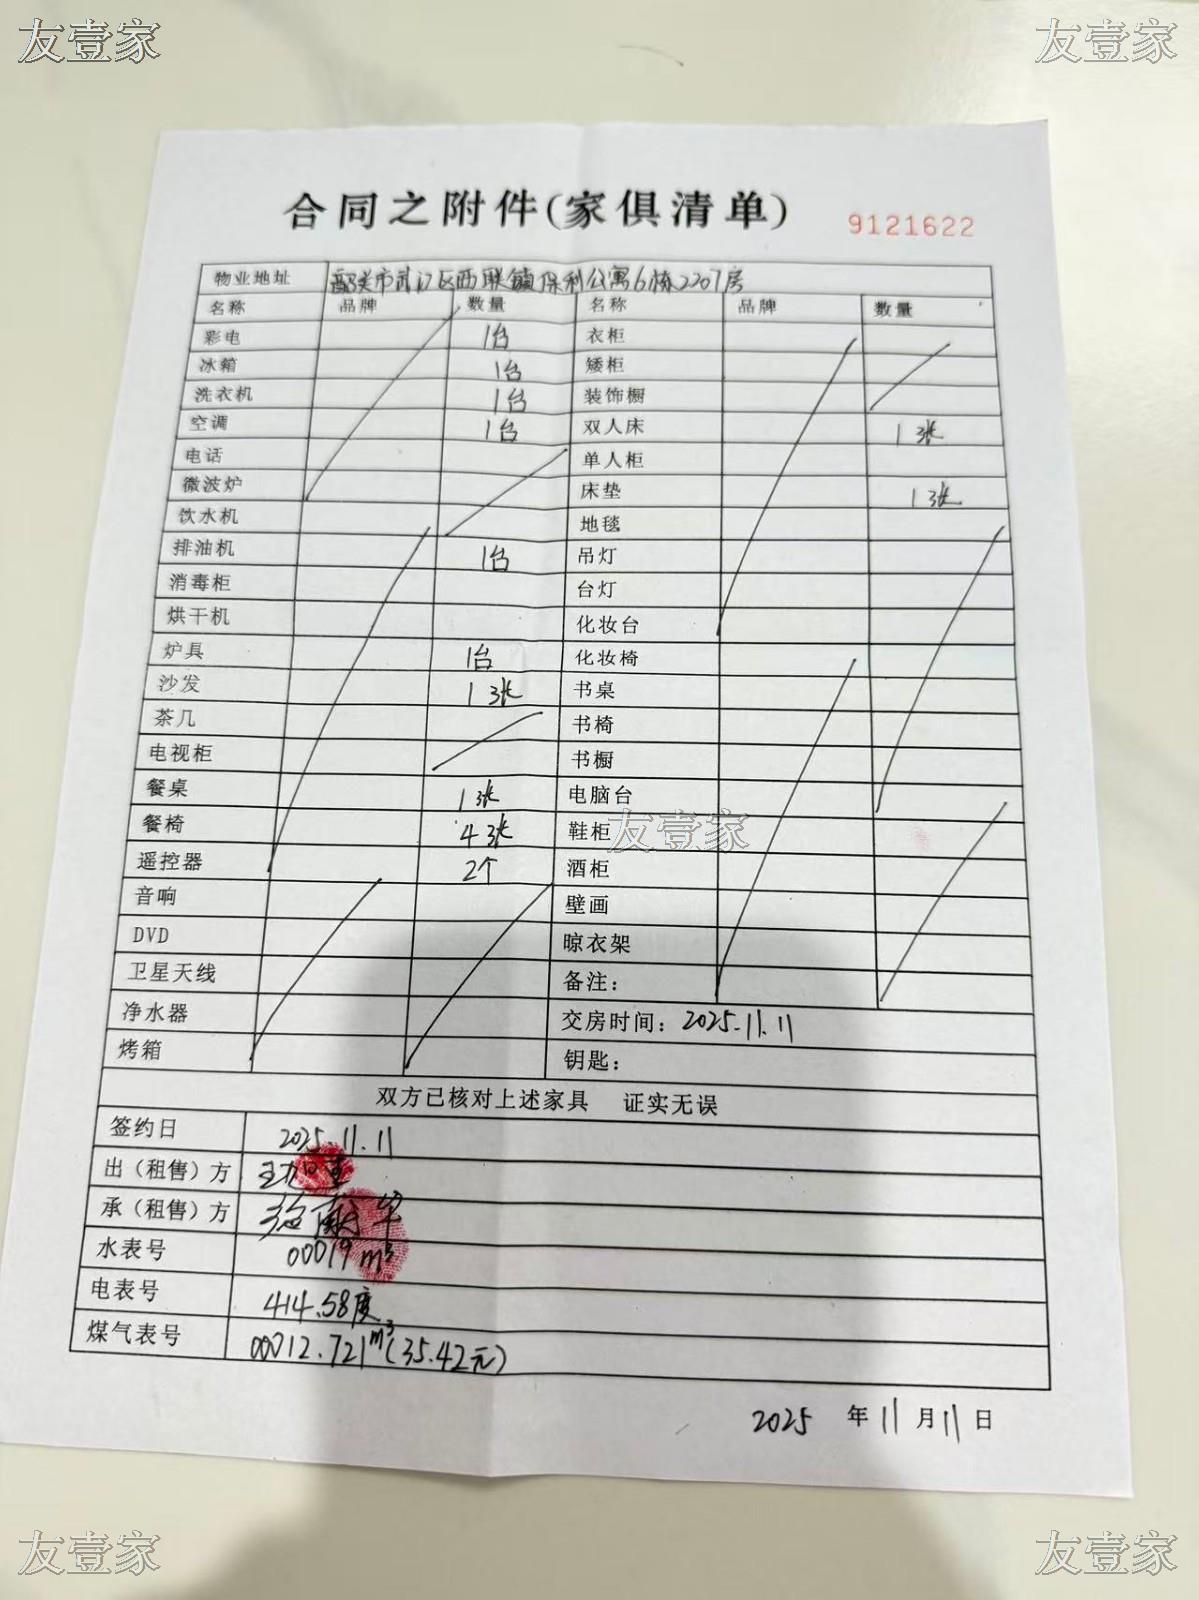 友壹家 友壹家
合同之附件(家俱清单) 9121622
物业地址 韶关市武江区西联镇保利公寓6栋2207房
名称 品牌 数量 名称 品牌 数量
彩电 1台 衣柜
冰箱 1台 矮柜
洗衣机 1台 装饰橱
空调 1台 双人床 1张
电话 单人柜
微波炉 床垫 1张
饮水机 地毯
排油机 1台 吊灯
消毒柜 台灯
烘干机 化妆台
炉具 1台 化妆椅
沙发 1张 书桌
茶几 书椅
电视柜 书橱
餐桌 1张 电脑台
餐椅 4张 鞋柜 友壹家
遥控器 2个 酒柜
音响 壁画
DVD 晾衣架
卫星天线 备注：
净水器 交房时间：2025.11.11
烤箱 钥匙：
双方已核对上述家具 证实无误
签约日 2025.11.11
出（租售）方
承（租售）方
水表号 00019m³
电表号 414.58度
煤气表号 00012.721m³(35.42元)
2025 年 11 月 11 日
友壹家 友壹家